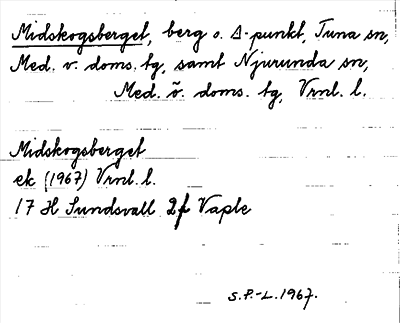 Midskogsberget, berg o. Δ-punkt, Tuna sn,
Med. v. doms. tg, samt Njurunda sn,
Med. ö. doms. tg, Vrnl. l.
Midskogsberget
ek (1967) Vrnl. l.
17 H Sundsvall 2f Vaple
S.P.-L. 1967.